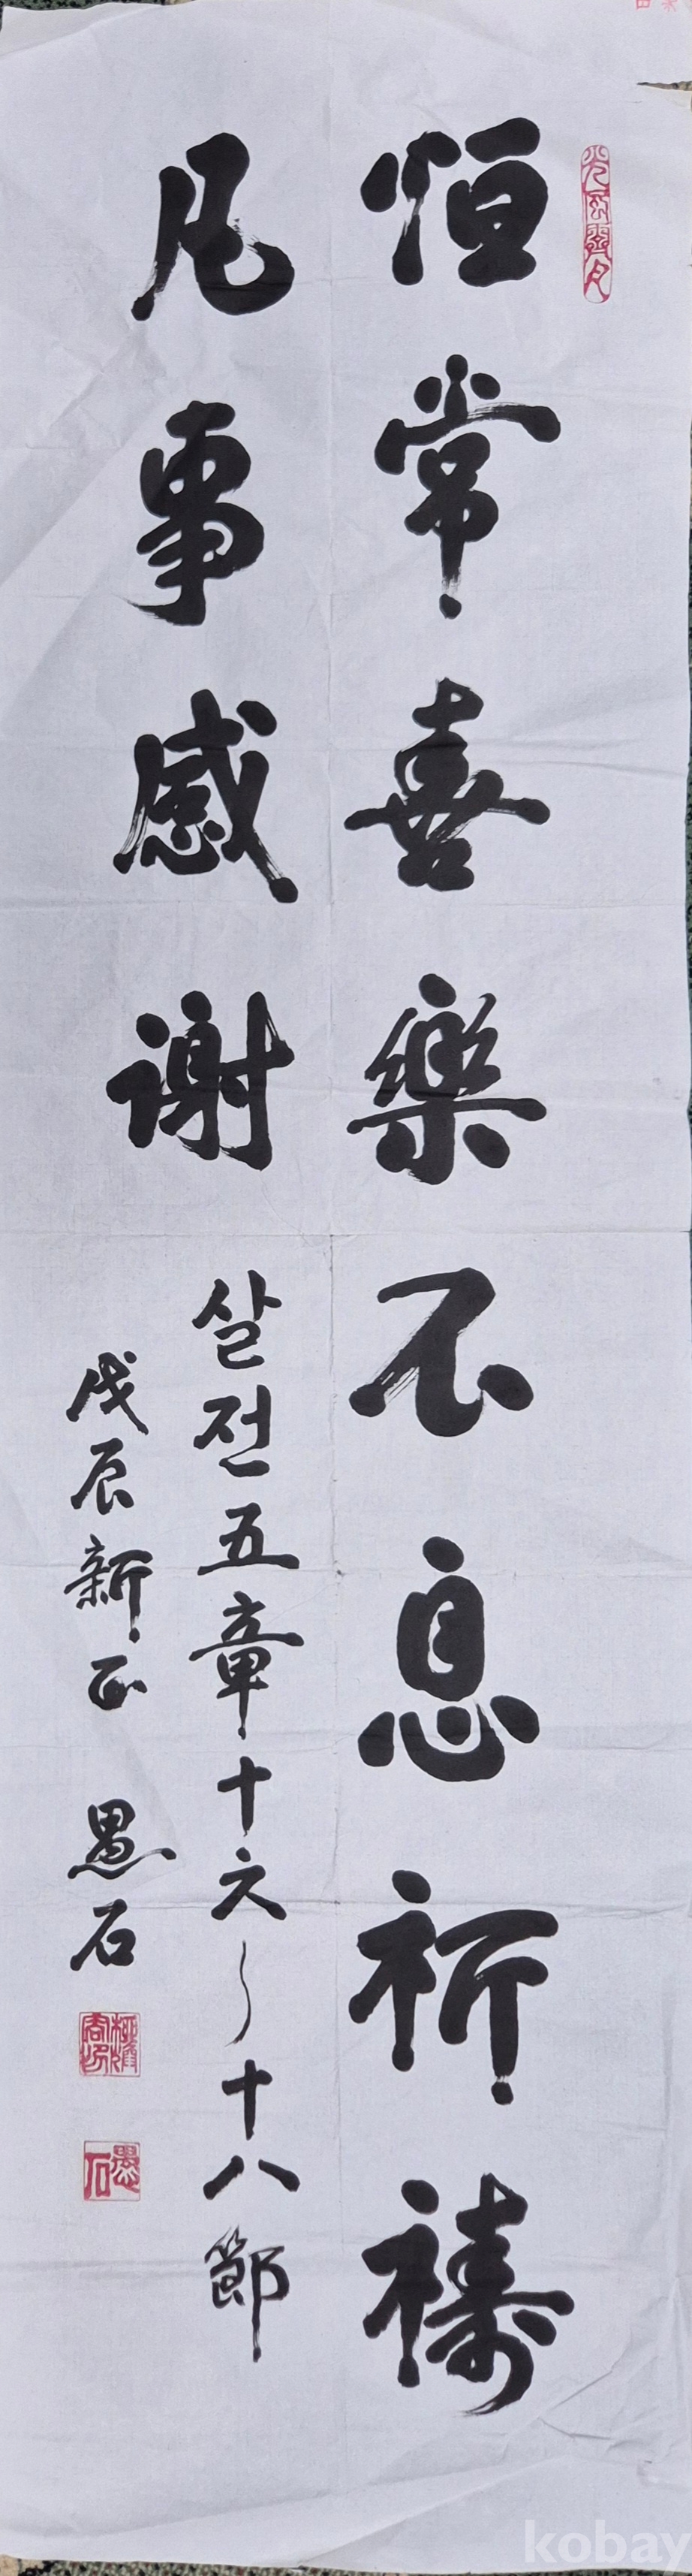 光風霽月
恒常喜樂不息祈禱
凡事感謝
살전五章十六~十八節
戊辰新正 愚石
愚石
kobay